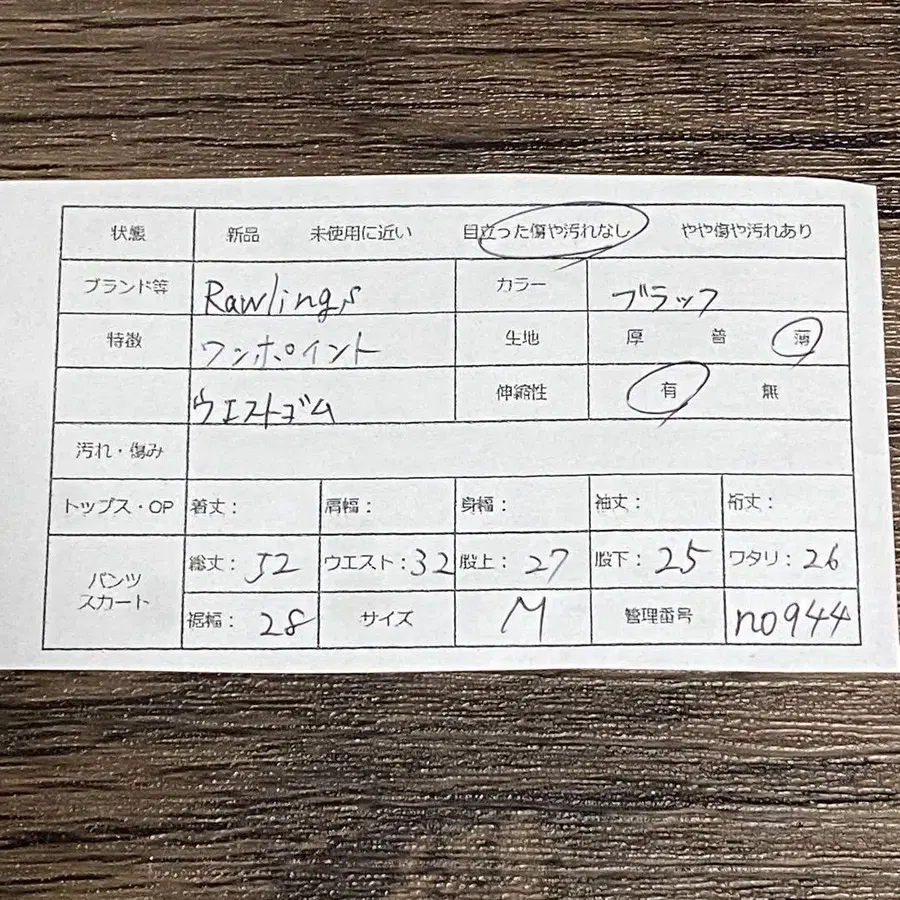 状態 新品 未使用に近い 目立った傷や汚れなし やや傷や汚れあり
ブランド等 Rawlings カラー ブラック
特徴 ワンポイント 生地 厚 普 薄
ウエストゴム 伸縮性 有 無
汚れ・傷み
トップス・OP 着丈: 肩幅: 身幅: 袖丈: 裄丈:
パンツ スカート 総丈:52 ウエスト:32 股上:27 股下:25 ワタリ:26
裾幅:28 サイズ M 管理番号 no944